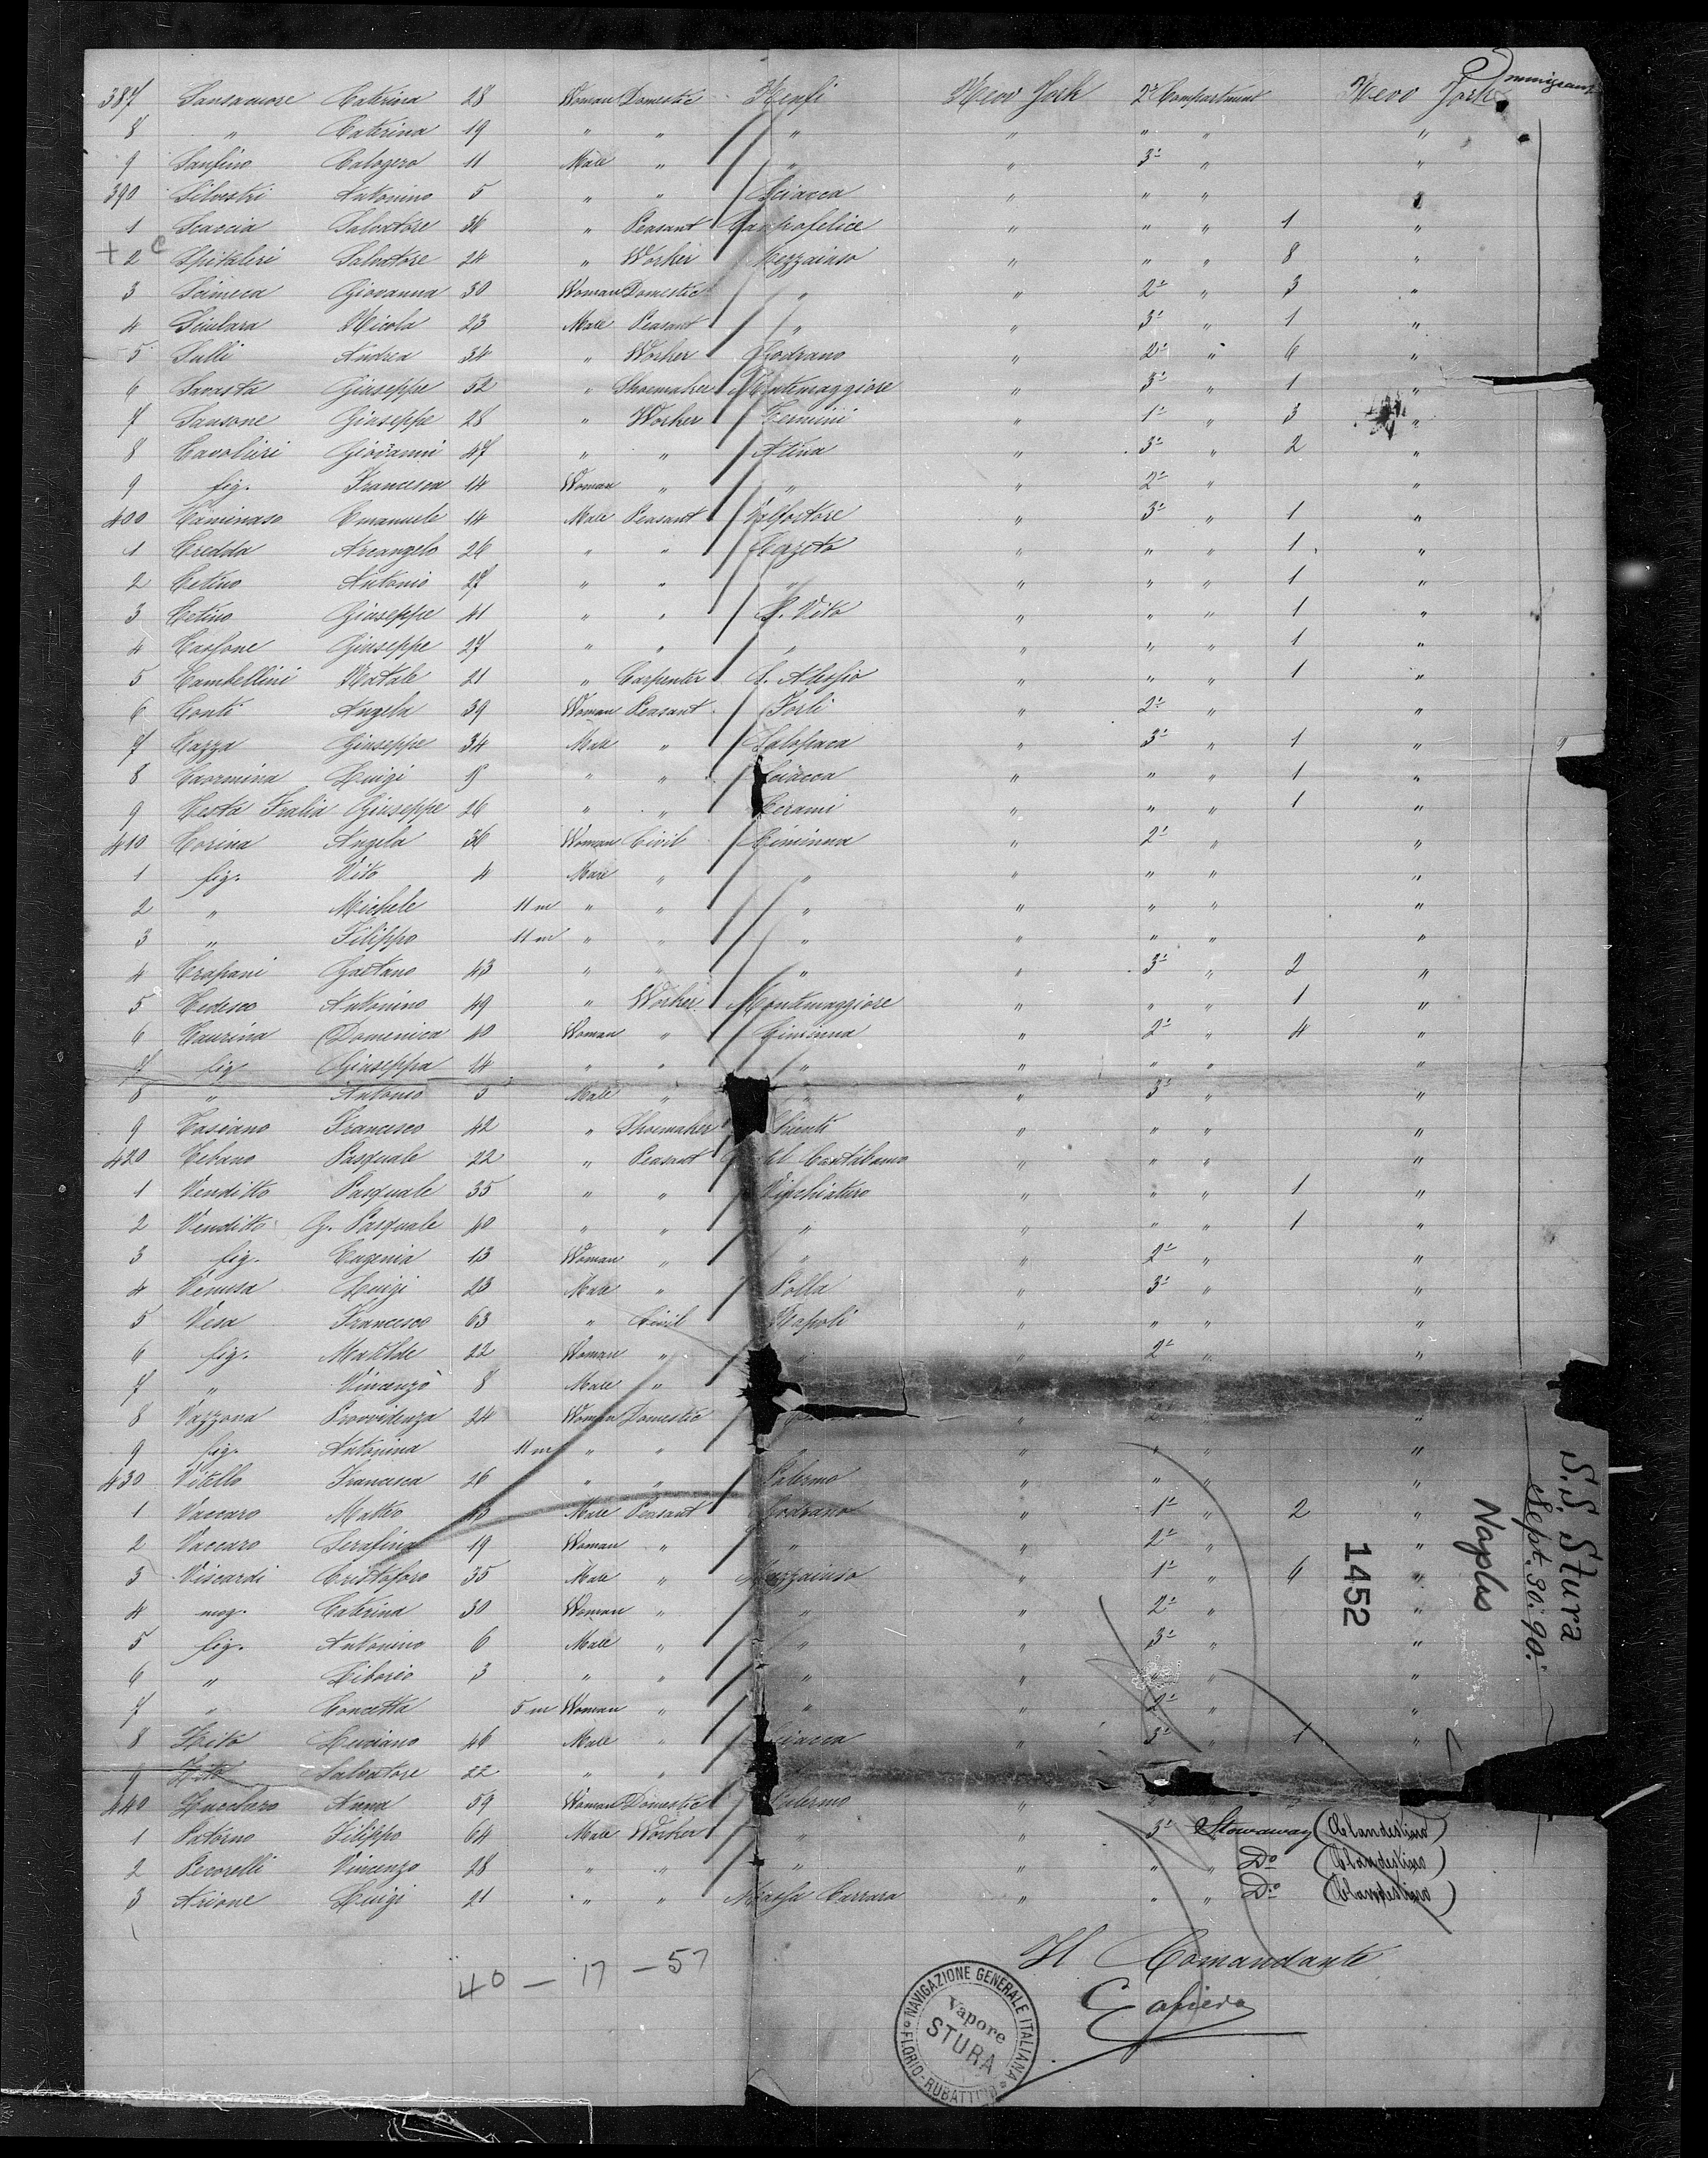 Immigrant
387 Sansamore Caterina 28 Woman Domestic Menfi New York 2º Compartment New York
8 " Caterina 19 " " " " " " "
9 Sanfino Calogero 11 Male " " " 3º " "
390 Silvestri Antonino 5 " " Sciacca " " " "
1 Scaccia Salvatore 36 " Peasant Campofelice " " " 1 "
+ 2 c Spitaleri Salvatore 24 " Worker Mezzaiuso " " " 8 "
3 Scimeca Giovanna 30 Woman Domestic " " 2º " 3 "
4 Sculara Nicola 23 Male Peasant " " 3º " 1 "
5 Sulli Andrea 34 " Worker Godrano " 2º " 6 "
6 Savasta Giuseppe 52 " Shoemaker Montemaggiore " 3º " 1 "
7 Sansone Giuseppa 28 " Worker Termini " 1º " 3 "
8 Tavolieri Giovanni 47 " " Atina " 3º " 2 "
9 fig. Francesca 14 Woman " " " 2º " "
400 Taminaso Emanuele 14 Male Peasant " 3º " 1 "
1 Tredda Arcangelo 26 " " " " " 1 "
2 Tetino Antonio 27 " " " " " " 1 "
3 Tetino Giuseppe 41 " " S. Vito " " " 1 "
4 Tarfone Giuseppe 27 " " " " " " 1 "
5 Tambellini Natale 21 " Carpenter S. Alessio " " " 1 "
6 Tonti Angela 39 Woman Peasant Forli " 2º " "
7 Tazza Giuseppe 34 Male " Solopaca " 3º " 1 "
8 Taormina Luigi 19 " " Sciacca " " " 1 "
9 Testa Fralia Giuseppe 26 " " Cerami " " " 1 "
410 Torina Angela 36 Woman Civil Ciminna " 2º " "
1 fig. Vito 4 Male " " " " " "
2 " Michele 11 m " " " " " " "
3 " Filippo 11 m " " " " " " "
4 Trapani Gaetano 43 " " " " 3º " 2 "
5 Tedesco Antonino 49 " Worker Montemaggiore " " " 1 "
6 Taurina Domenica 40 Woman " Ciminna " 2º " 4 "
7 fig. Giuseppa 14 " " " " " " "
8 " Antonio 5 Male " " " 3º " "
9 Tasiano Francesco 42 " Shoemaker " " " "
420 Tebano Pasquale 22 " Peasant " " " "
1 Venditto Pasquale 35 " " Vinchiaturo " " " 1 "
2 Venditto G. Pasquale 40 " " " " " " 1 "
3 fig. Eugenia 13 Woman " " " 2º " "
4 Venusa Luigi 23 Male " Polla " 3º " "
5 Visa Francesco 63 " Civil Napoli " " " "
6 fig. Matilde 22 Woman " " " 2º " "
7 " Vincenzo 8 Male "
8 Vazzana Provvidenza 24 Woman Domestic " "
9 fig. Antonina 11 m " " " " " " "
430 Vitello Francesca 26 " " Palermo " " " "
1 Vaccaro Matteo 43 Male Peasant Godrano " 1º " 2 "
2 Vaccaro Serafina 19 Woman " " " 2º " "
3 Viscardi Cristoforo 35 Male " Mezzaiuso " 1º " 6 "
4 mog. Caterina 30 Woman " " " 2º " "
5 fig. Antonino 6 Male " " " 3º " "
6 " Liborio 3 " " " " " " "
7 " Concetta 5 m Woman " " " 2º " "
8 Zito Luciano 46 Male " Sciacca " 3º " 1 "
9 Zito Salvatore 22 " "
440 Zuccharo Anna 59 Woman Domestic Palermo "
1 Patorno Filippo 64 Male Worker " " 3º Stowaway (Clandestino)
2 Pecorelli Vincenzo 28 " " " " " " Dº (Clandestino)
3 Arione Luigi 21 " " Massa Carrara " " " Dº (Clandestino)
Il Comandante
Cafiero
40 — 17 — 57
NAVIGAZIONE GENERALE ITALIANA
FLORIO-RUBATTINO
Vapore
STURA
S.S. Stura
Sept. 30. 90.
Naples
1452